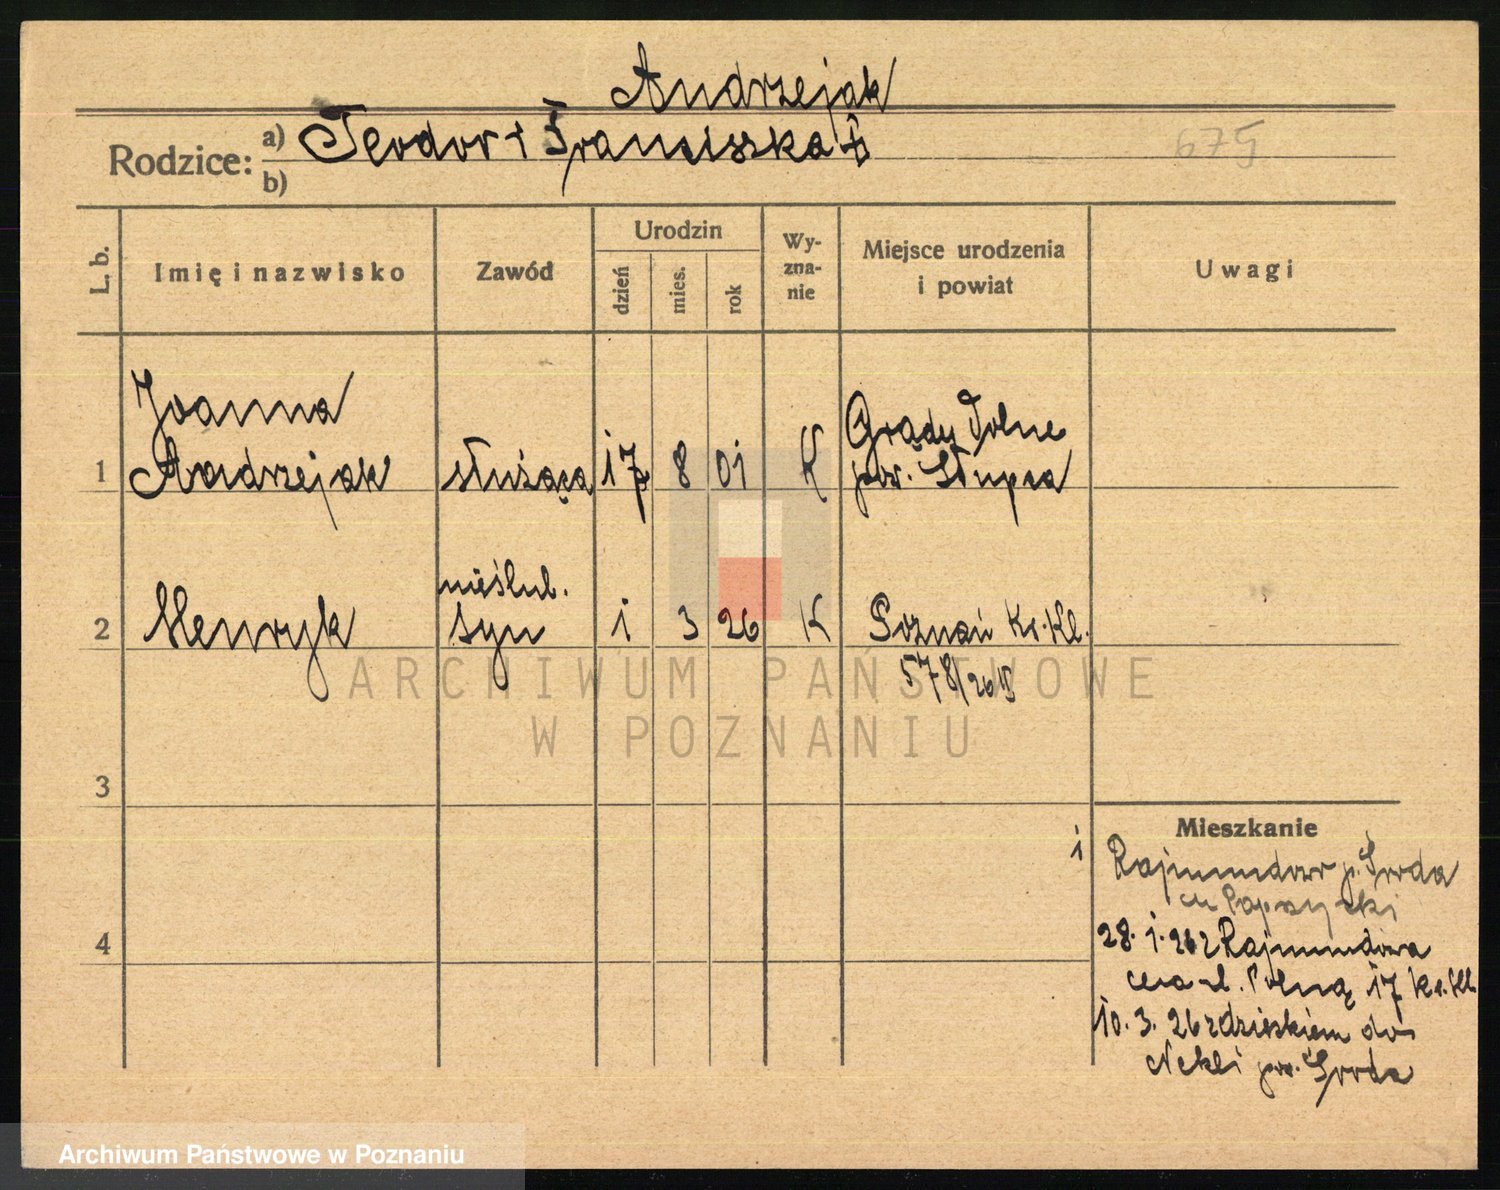 Andrzejak
Rodzice: a) Teodor + Franciszka +
b)
675
L. b.
Imię i nazwisko
Zawód
Urodzin
dzień
mies.
rok
Wy-
zna-
nie
Miejsce urodzenia
i powiat
Uwagi
Joanna
Grądy Dolne
1 Andrzejak służąca 17 8 01 K pow. Słupca
nieślub.
2 Henryk syn 1 3 26 K Poznań Kr. Kl.
578/26
ARCHIWUM PAŃSTWOWE
W POZNANIU
3
Mieszkanie
1 Rajmundowo p. Środa
4
28. 1. 26 z Rajmundowa
Polną 17 Kr. Kl.
10. 3. 26 z dzieckiem do
Nekli pow. Środa
Archiwum Państwowe w Poznaniu